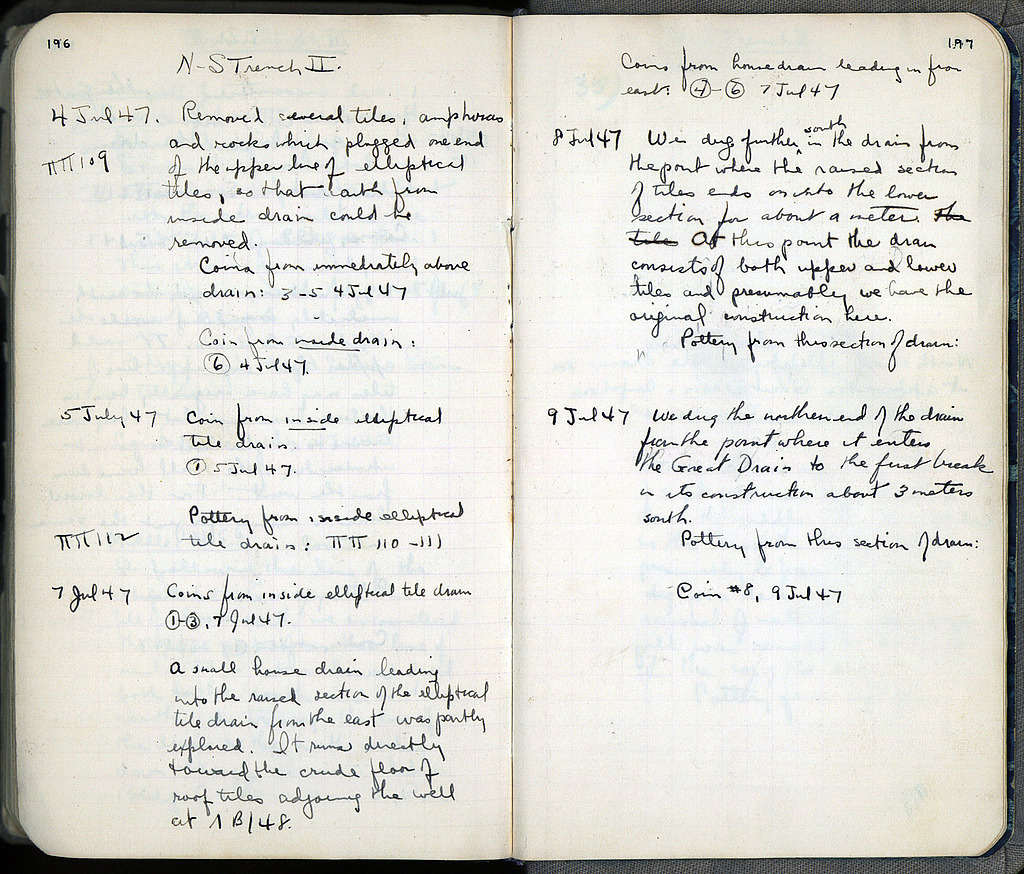 196
N-S Trench II.
4 Jul 47. Removed several tiles, amphoras
and rocks which plugged one end
ΠΠ 109
of the upper line of elliptical
tiles, so that earth from
inside drain could be
removed.
Coins from immediately above
drain: 3-5 4 Jul 47
Coin from inside drain:
⑥ 4 Jul 47.
5 July 47 Coin from inside elliptical
tile drain.
① 5 Jul 47.
Pottery from inside elliptical
ΠΠ 112 tile drain: ΠΠ 110-111
7 Jul 47 Coins from inside elliptical tile drain
①-③, 7 Jul 47.
A small house drain leading
into the raised section of the elliptical
tile drain from the east was partly
explored. It runs directly
toward the crude floor of
roof tiles adjoining the well
at 1 B/48.
197
Coins from house drain leading in from
east: ④-⑥ 7 Jul 47
8 Jul 47 We dug further south in the drain from
the point where the raised section
of tiles ends on into the lower
section for about a meter. The
tile At this point the drain
consists of both upper and lower
tiles and presumably we have the
original construction here.
Pottery from this section of drain:
9 Jul 47 We dug the northern end of the drain
from the point where it enters
the Great Drain to the first break
in its construction about 3 meters
south.
Pottery from this section of drain:
Coin #8, 9 Jul 47